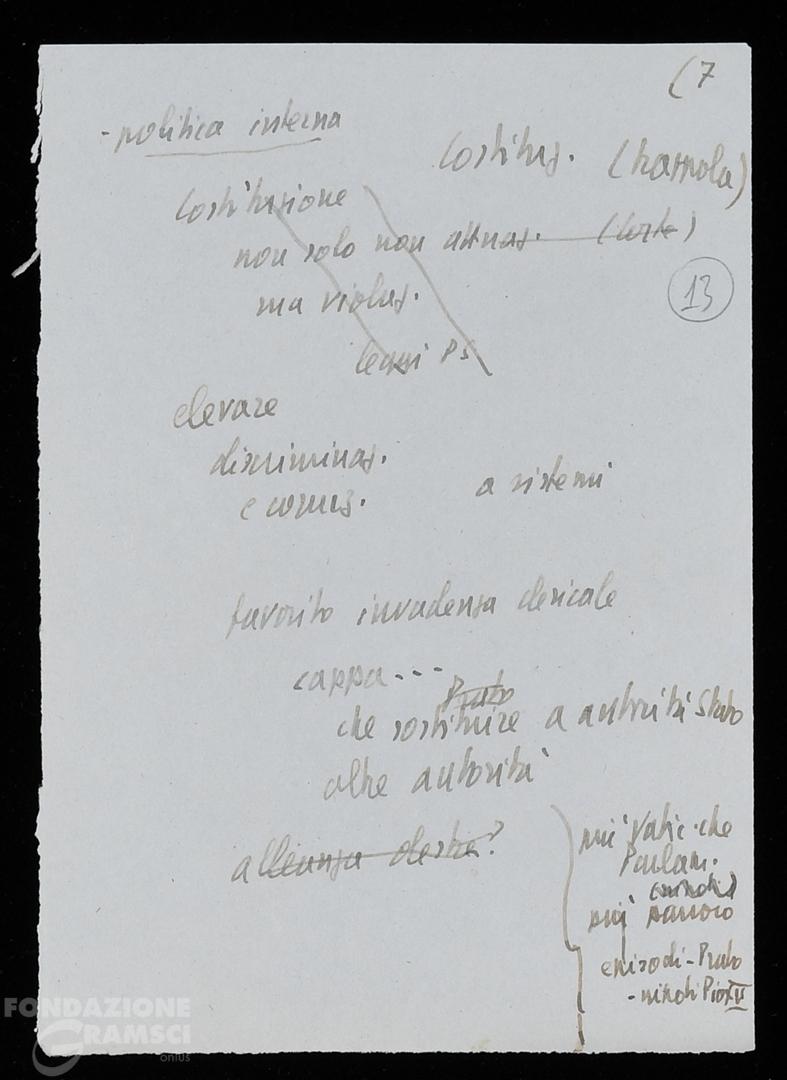 (7
- politica interna
Costituz. (trappola)
Costituzione
non solo non attuaz. (Corte)
ma violaz.
13
leggi PS
elevare
discriminaz.
e corruz. a sistemi
favorito invadenza clericale
cappa...
Prato
che sostituire a autorità Stato
altre autorità
alleanza destre?
più Vatic. che
Parlam.
più parroco
episodi - Prato
- nipoti Pio XII
FONDAZIONE
GRAMSCI
onlus